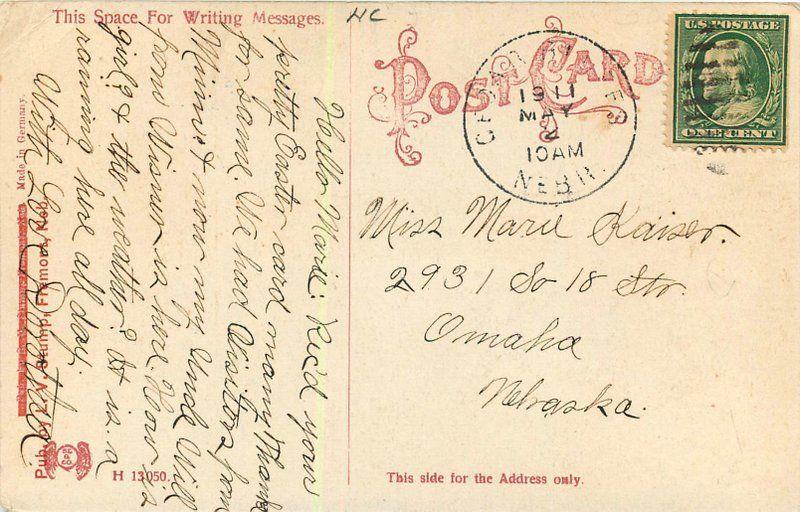 This Space For Writing Messages.
HC
POST CARD
U.S. POSTAGE
ONE CENT
1911
MAY
2
10 AM
NEBR.
Hello Marie: Rec'd your
pretty Easter card many Thanks
for same. We had Visitors from
Minn & now my Uncle Will
from Wisner is here. How is
girl? & the weather? It is a
raining here all day.
With Love
Miss Marie Kaiser.
2931 So 18 Str.
Omaha
Nebraska.
Made in Germany.
Pub. by L. V. Stump, Fremont, Neb.
H 13050.
This side for the Address only.